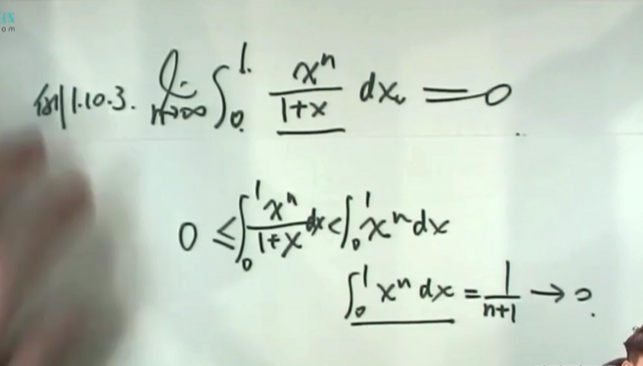 例1.10.3. lim n→∞ ∫₀¹ xⁿ/(1+x) dx = 0
0 ≤ ∫₀¹ xⁿ/(1+x) dx < ∫₀¹ xⁿ dx
∫₀¹ xⁿ dx = 1/(n+1) → 0.